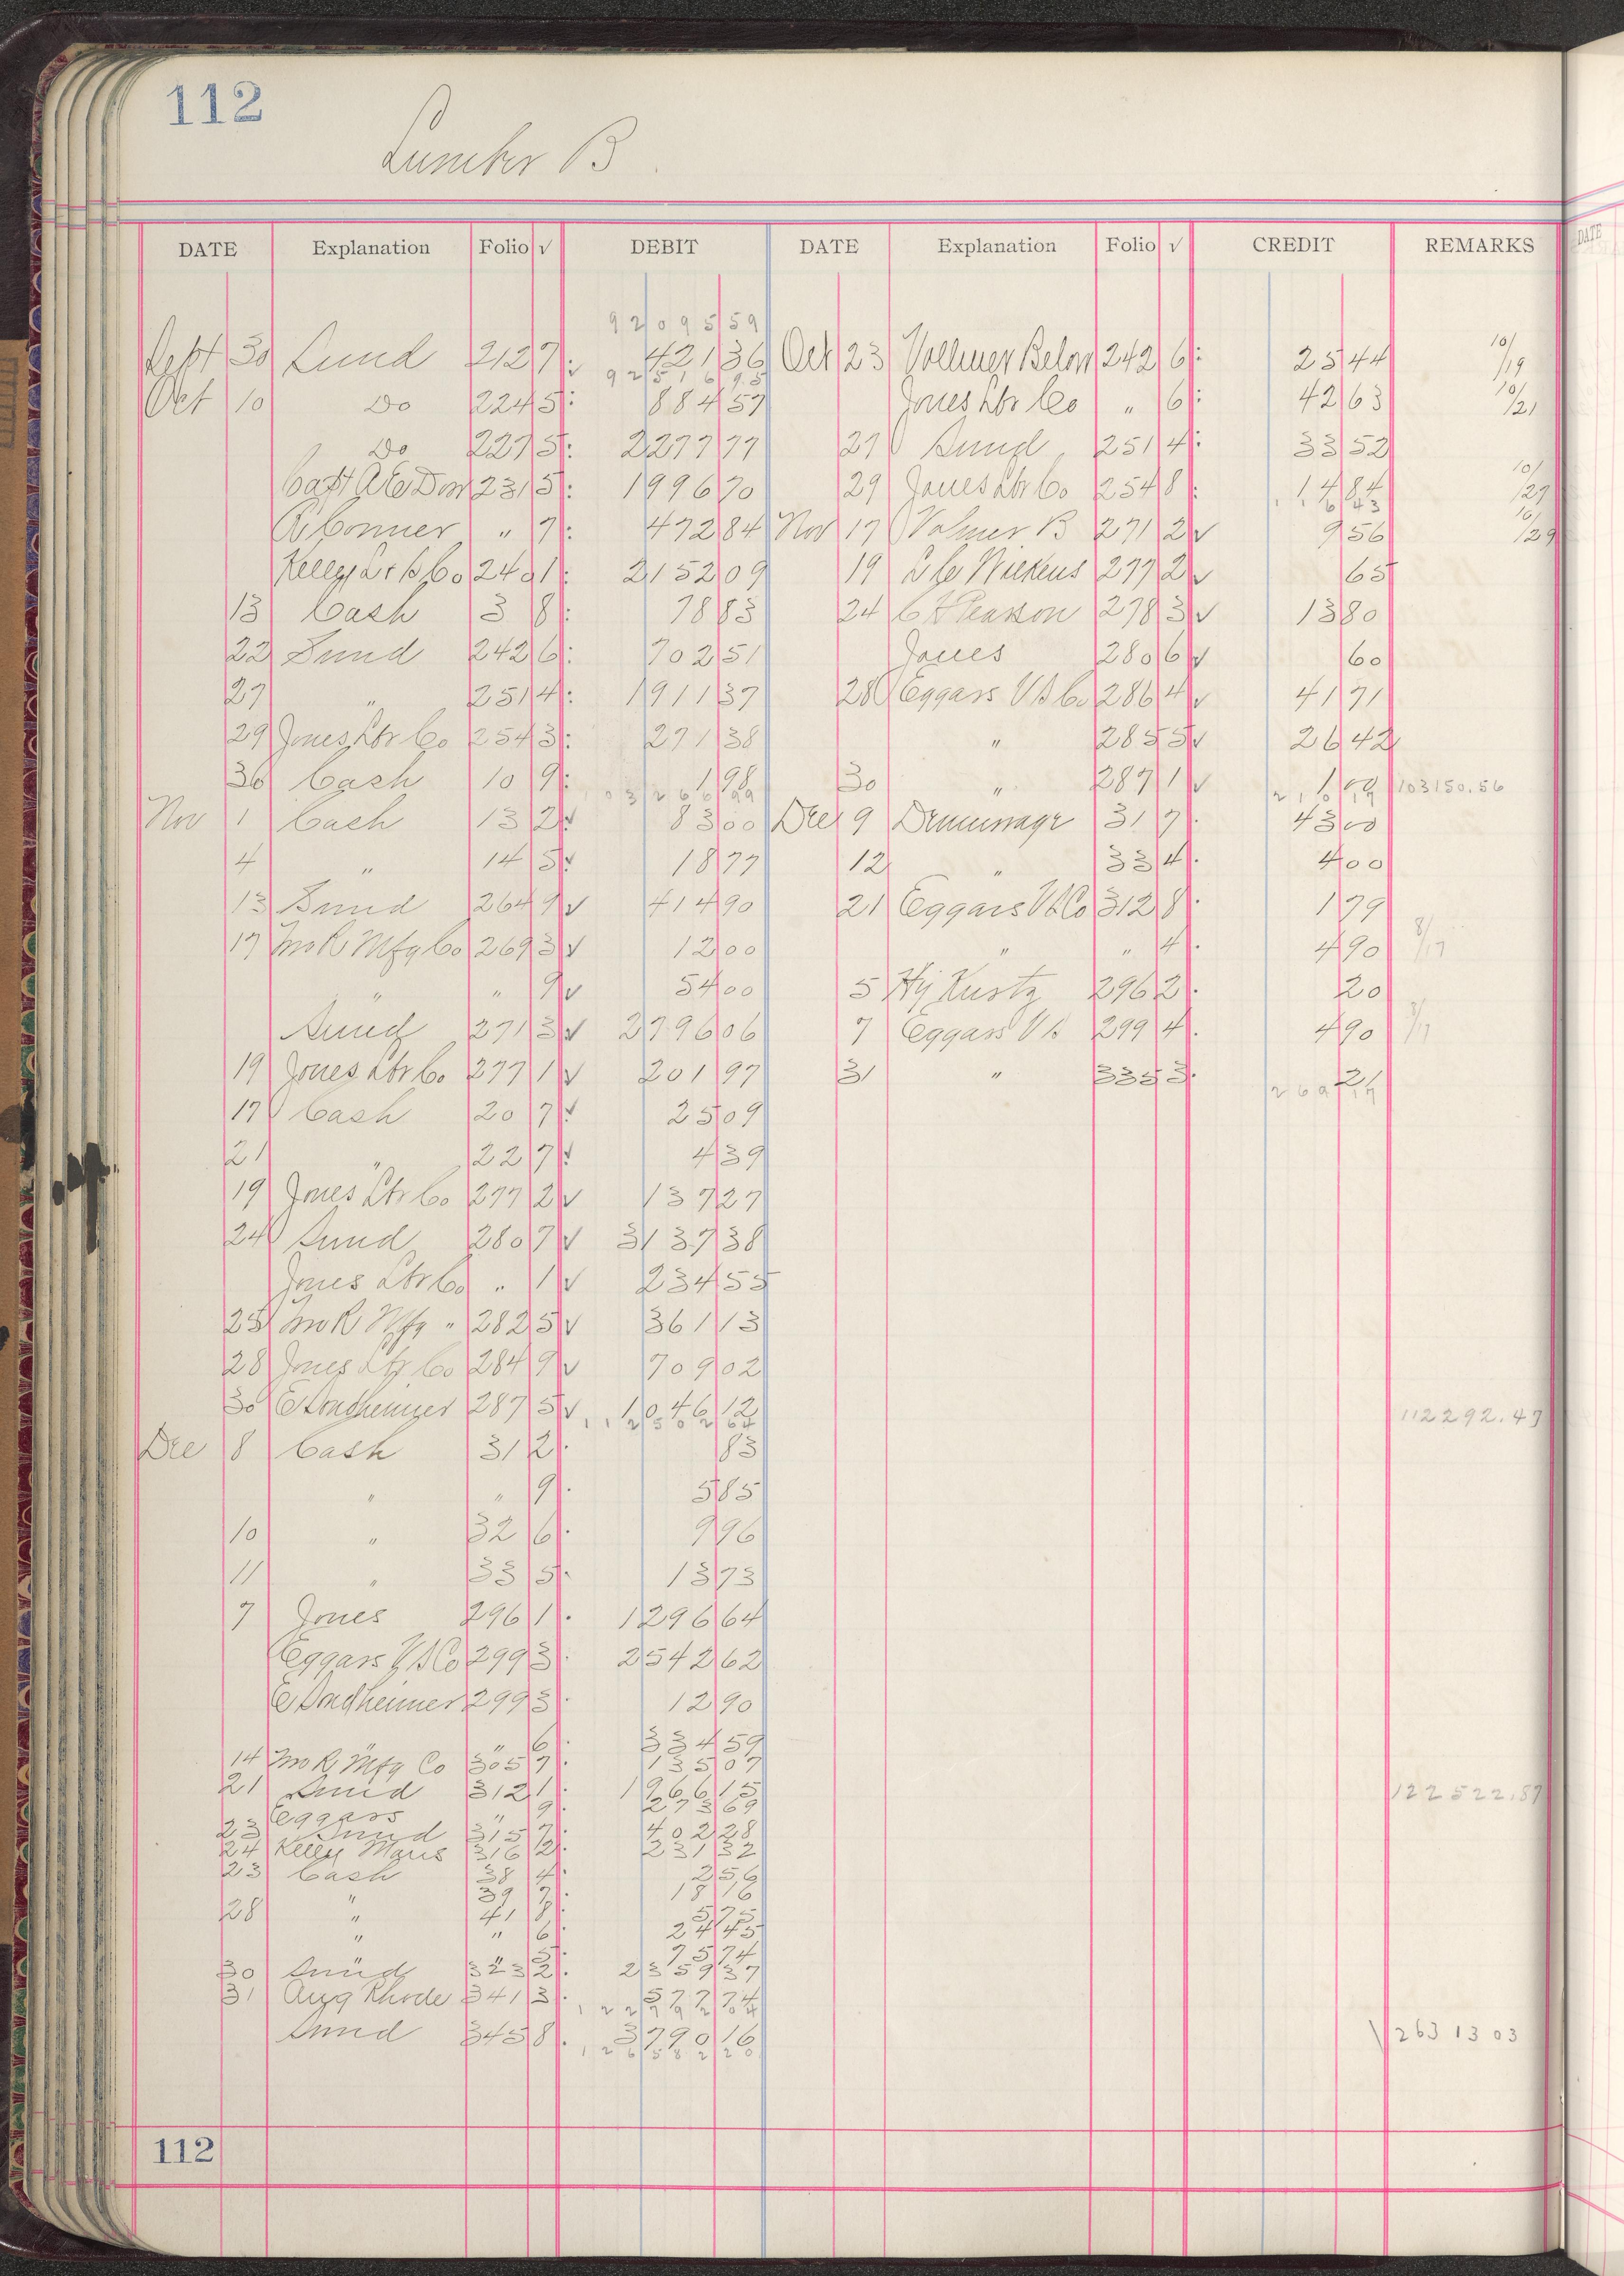 112
Lumber B
DATE Explanation Folio √ DEBIT DATE Explanation Folio √ CREDIT REMARKS
92095 59
Sept 30 Sund 212 7 : 421 36 Oct 23 Vollmer Below 242 6 : 25 44 10/19
92516 95
Oct 10 Do 224 5 : 884 57 Jones Lbr Co " 6 : 42 63 10/21
Do 227 5 : 2277 77 27 Sund 251 4 : 33 52
Capt A C Dorr 231 5 : 1996 70 29 Jones Lbr Co 254 8 : 14 84 10/27
116 43
" 7 : 472 84 Nov 17 Volmer B 271 2 √ 9 56 10/29
Kelly Lr & Co 240 1 : 2152 09 19 277 2 √ 65
13 Cash 3 8 : 78 83 24 C H Pearson 278 3 √ 13 80
22 Sund 242 6 : 702 51 Jones 280 6 √ 60
27 " 251 4 : 1911 37 28 Eggars V S Co 286 4 √ 41 71
29 Jones Lbr Co 254 3 : 271 38 " 285 5 √ 26 42
30 Cash 10 9 : 1 98 30 " 287 1 √ 1 00 103150.56
103266 99 210 17
Nov 1 Cash 13 2 √ 83 00 Dec 9 Demurrage 31 7 . 43 00
4 " 14 5 √ 18 77 12 " 33 4 . 4 00
13 Sund 264 9 √ 414 90 21 Eggars V S Co 312 8 . 1 79
17 Mo R Mfg Co 269 3 √ 12 00 " " 4 . 4 90 8/17
" " 9 √ 54 00 5 Hy Kurtz 296 2 . 20
Sund 271 3 √ 2796 06 7 Eggars V S 299 4 . 4 90 8/17
19 Jones Lbr Co 277 1 √ 201 97 31 " 335 3 . 21
269 17
17 Cash 20 7 √ 25 09
21 " 22 7 √ 4 39
19 Jones Lbr Co 277 2 √ 137 27
24 Sund 280 7 √ 3137 38
Jones Lbr Co " 1 √ 234 55
25 Mo R Mfg " 282 5 √ 361 13
28 Jones Lbr Co 284 9 √ 709 02
30 E Sondheimer 287 5 √ 1046 12
112502 64 112292.47
Dec 8 Cash 31 2 . 83
" " 9 . 5 85
10 " 32 6 . 9 96
11 " 33 5 . 13 73
7 Jones 296 1 . 1296 64
Eggars V S Co 299 3 . 2542 62
E Sondheimer 299 3 . 12 90
" 6 334 59
14 Mo R Mfg Co 305 7 . 135 07
21 Sund 312 1 . 1966 15 122522.87
Eggars " 9 . 273 69
23 Sund 315 7 . 402 28
24 Kelly Maus 316 2 . 231 32
23 Cash 38 4 . 2 56
" 39 7 . 18 16
28 " 41 8 . 5 75
" " 6 . 24 45
" 5 . 75 74
30 Sund 323 2 . 2359 37
31 Aug Rhode 341 3 . 577 74
122792 04
Sund 345 8 . 3790 16 126313 03
126582 20
112